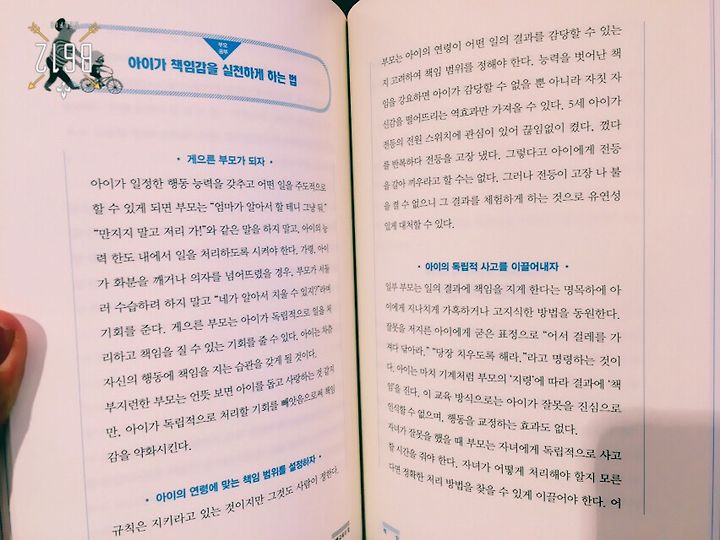 부모
공부
아이가 책임감을 실천하게 하는 법
• 게으른 부모가 되자 •
아이가 일정한 행동 능력을 갖추고 어떤 일을 주도적으로
할 수 있게 되면 부모는 “엄마가 알아서 할 테니 그냥 둬.”
“만지지 말고 저리 가!”와 같은 말을 하지 말고, 아이의 능
력 한도 내에서 일을 처리하도록 시켜야 한다. 가령, 아이
가 화분을 깨거나 의자를 넘어뜨렸을 경우, 부모가 서둘
러 수습하려 하지 말고 “네가 알아서 치울 수 있지?”라며
기회를 준다. 게으른 부모는 아이가 독립적으로 일을 처
리하고 책임을 질 수 있는 기회를 줄 수 있다. 아이는 차츰
자신의 행동에 책임을 지는 습관을 갖게 될 것이다.
부지런한 부모는 언뜻 보면 아이를 돕고 사랑하는 것 같지
만, 아이가 독립적으로 처리할 기회를 빼앗음으로써 책임
감을 약화시킨다.
• 아이의 연령에 맞는 책임 범위를 설정하자 •
규칙은 지키라고 있는 것이지만 그것도 사람이 정한다.
부모는 아이의 연령이 어떤 일의 결과를 감당할 수 있는
지 고려하여 책임 범위를 정해야 한다. 능력을 벗어난 책
임을 강요하면 아이가 감당할 수 없을 뿐 아니라 자칫 자
신감을 떨어뜨리는 역효과만 가져올 수 있다. 5세 아이가
전등의 전원 스위치에 관심이 있어 끊임없이 켰다, 껐다
를 반복하다 전등을 고장 냈다. 그렇다고 아이에게 전등
을 갈아 끼우라고 할 수는 없다. 그러나 전등이 고장 나 불
을 켤 수 없으니 그 결과를 체험하게 하는 것으로 유연성
있게 대처할 수 있다.
• 아이의 독립적 사고를 이끌어내자 •
일부 부모는 일의 결과에 책임을 지게 한다는 명목하에 아
이에게 지나치게 가혹하거나 고지식한 방법을 동원한다.
잘못을 저지른 아이에게 굳은 표정으로 “어서 걸레를 가
져다 닦아라.” “당장 치우도록 해라.”라고 명령하는 것이
다. 아이는 마치 기계처럼 부모의 ‘지령’에 따라 결과에 ‘책
임’을 진다. 이 교육 방식으로는 아이가 잘못을 진심으로
인식할 수 없으며, 행동을 교정하는 효과도 없다.
자녀가 잘못을 했을 때 부모는 자녀에게 독립적으로 사고
할 시간을 줘야 한다. 자녀가 어떻게 처리해야 할지 모른
다면 정확한 처리 방법을 찾을 수 있게 이끌어야 한다. 어